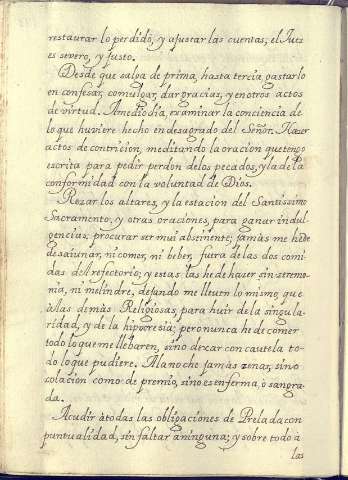 restaurar lo perdido, y ajustar las cuentas; el Juez
es severo, y justo.
Desde que salga de prima, hasta tercia, gastarlo
en confesar, comulgar, dar gracias, y en otros actos
de virtud. A mediodia, examinar la conciencia de
lo que huviere hecho en desagrado del Señor. Hazer
actos de contricion, meditando la oracion que tengo
escrita para pedir perdon delos pecados, y la de la
conformidad con la voluntad de Dios.
Rezar los altares, y la estacion del Santissimo
Sacramento, y otras oraciones, para ganar indul-
gencias; procurar ser mui abstinente; jamàs me hè de
desaiunar, ni comer, ni beber, fuera de las dos comi
das del refectorio; y estas las he de hazer sin ceremo-
nia, ni melindre, dejando me lleven lo mismo, que
à las demàs Religiosas, para huir de la singula-
ridad, y de la hipocresia; pero nunca he de comer
todo lo que me llebaren, sino dexar con cautela to-
do lo que pudiere. A la noche jamàs zenar, sino
colacion como de premio, sino es enferma, o sangra-
da.
Acudir à todas las obligaciones de Prelada con
puntualidad, sin faltar a ninguna; y sobre todo à
las